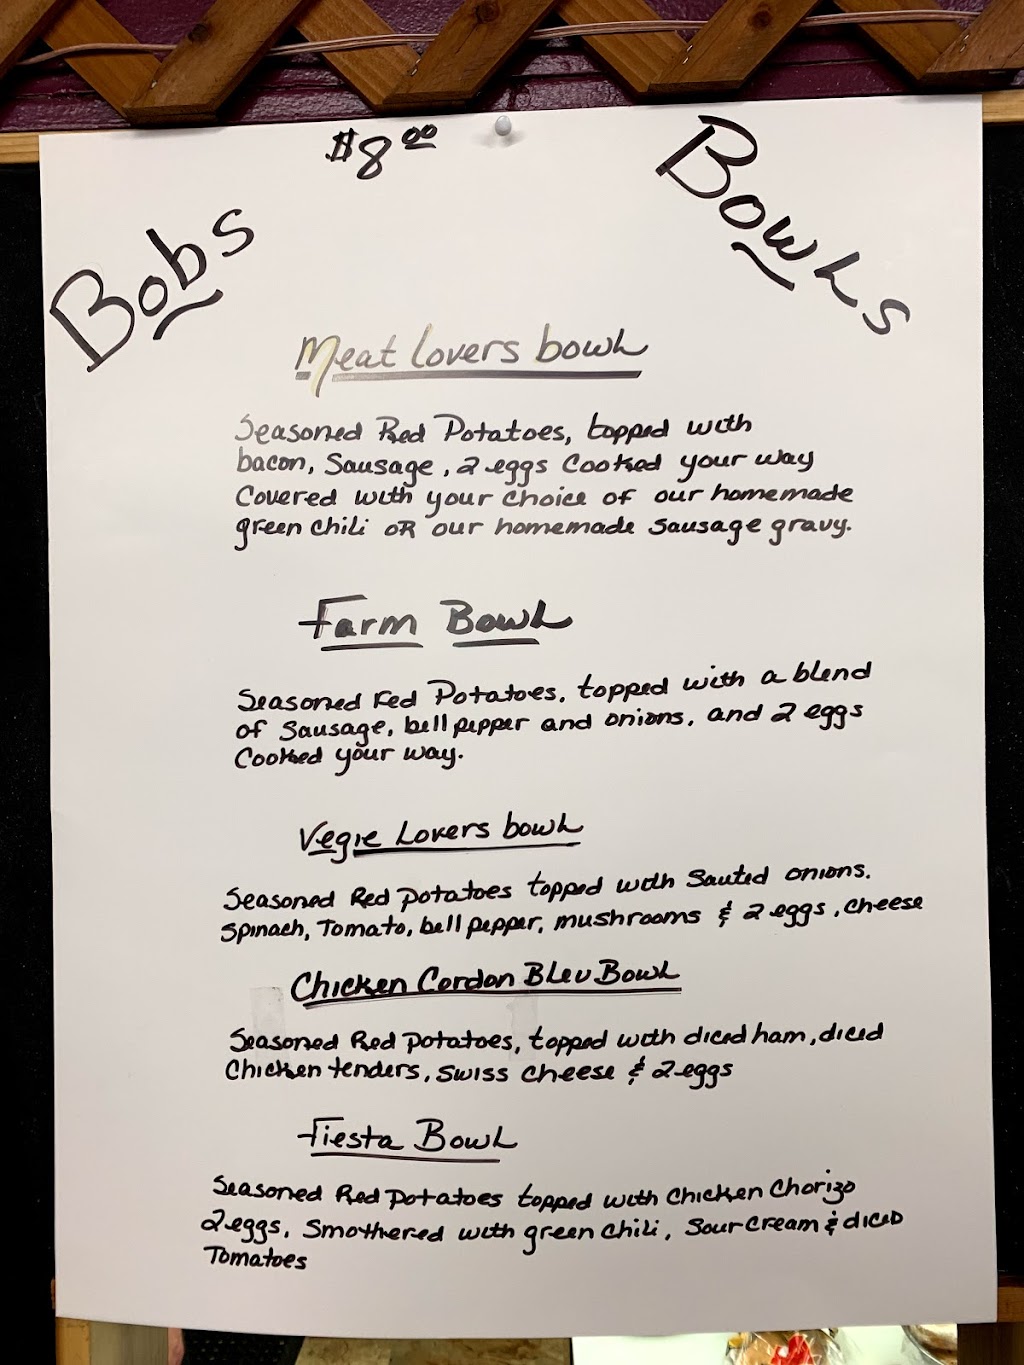 $8.00
Bobs Bowls
Meat Lovers bowl
Seasoned Red Potatoes, topped with
bacon, Sausage, 2 eggs Cooked your way
Covered with your choice of our homemade
green chili OR our homemade sausage gravy.
Farm Bowl
Seasoned red Potatoes, topped with a blend
of Sausage, bell pepper and onions, and 2 eggs
Cooked your way.
Vegie Lovers bowl
Seasoned Red potatoes topped with Sauted onions.
Spinach, Tomato, bell pepper, mushrooms & 2 eggs, cheese
Chicken Cordon Bleu Bowl
Seasoned Red potatoes, topped with diced ham, diced
Chicken tenders, swiss cheese & 2 eggs
Fiesta Bowl
Seasoned Red potatoes topped with Chicken Chorizo
2 eggs, Smothered with green chili, Sour Cream & diced
Tomatoes